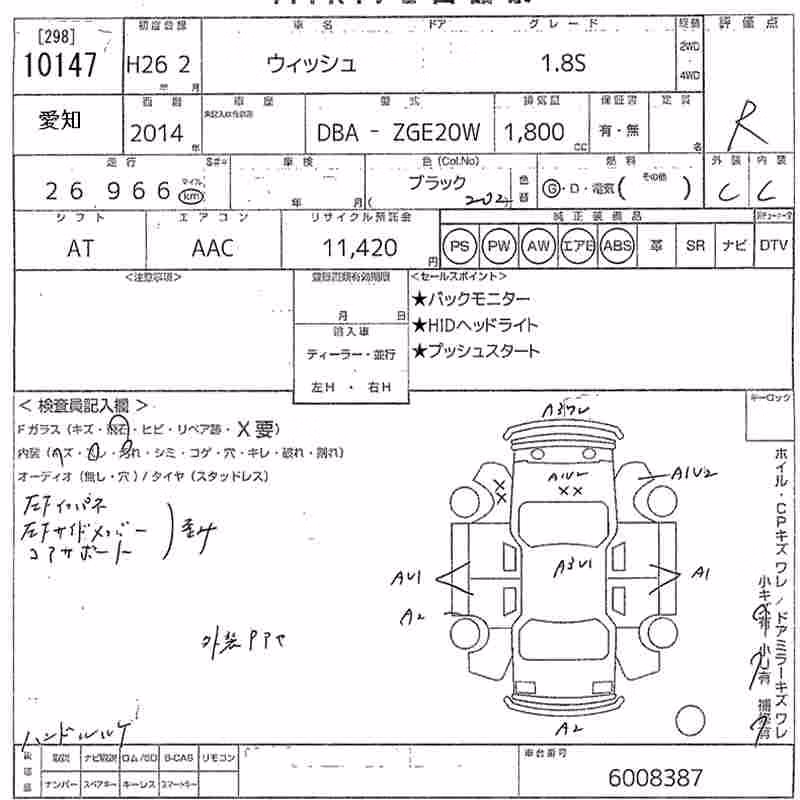 [298]
10147
初度登録
H26 2
年 月
車名
ウィッシュ
ドア
グレード
1.8S
駆動
2WD
・
4WD
評価点
R
愛知
西暦
2014
年
車歴
型式
DBA - ZGE20W
排気量
1,800
CC
保証書
有・無
定員
名
走行
26 966
マイル
km
S#=
車検
年 月
色(Col.No)
ブラック
( 202
色替
燃料
G・D・電気( その他 )
外装
C
内装
C
シフト
AT
エアコン
AAC
リサイクル預託金
11,420
円
純正装備品
PS
PW
AW
エアB
ABS
革
SR
ナビ
DTV
<注意事項>
登録書類有効期限
月 日
輸入車
ディーラー・並行
左H ・ 右H
<セールスポイント>
★バックモニター
★HIDヘッドライト
★プッシュスタート
キーロック
< 検査員記入欄 >
Fガラス (キズ・飛石・ヒビ・リペア跡・X要)
内装 (キズ・スレ・汚れ・シミ・コゲ・穴・キレ・破れ・割れ)
オーディオ (無し・穴) / タイヤ (スタッドレス)
左Fインパネ
左Fサイドメンバー
コアサポート
) 歪み
外装PPセ
ハンドルハゲ
A3ワレ
A1U2
XX
X
X
A1U2
A3U1
AU1
A1
A2
A2
ホイル・CPキズワレ / ドアミラーキズワレ
小キズ有 小U有 補修有
取説
ナビ取説
ロム/SD
B-CAS
リモコン
ナンバー
スペアキー
キーレス
スマートキー
車台番号
6008387